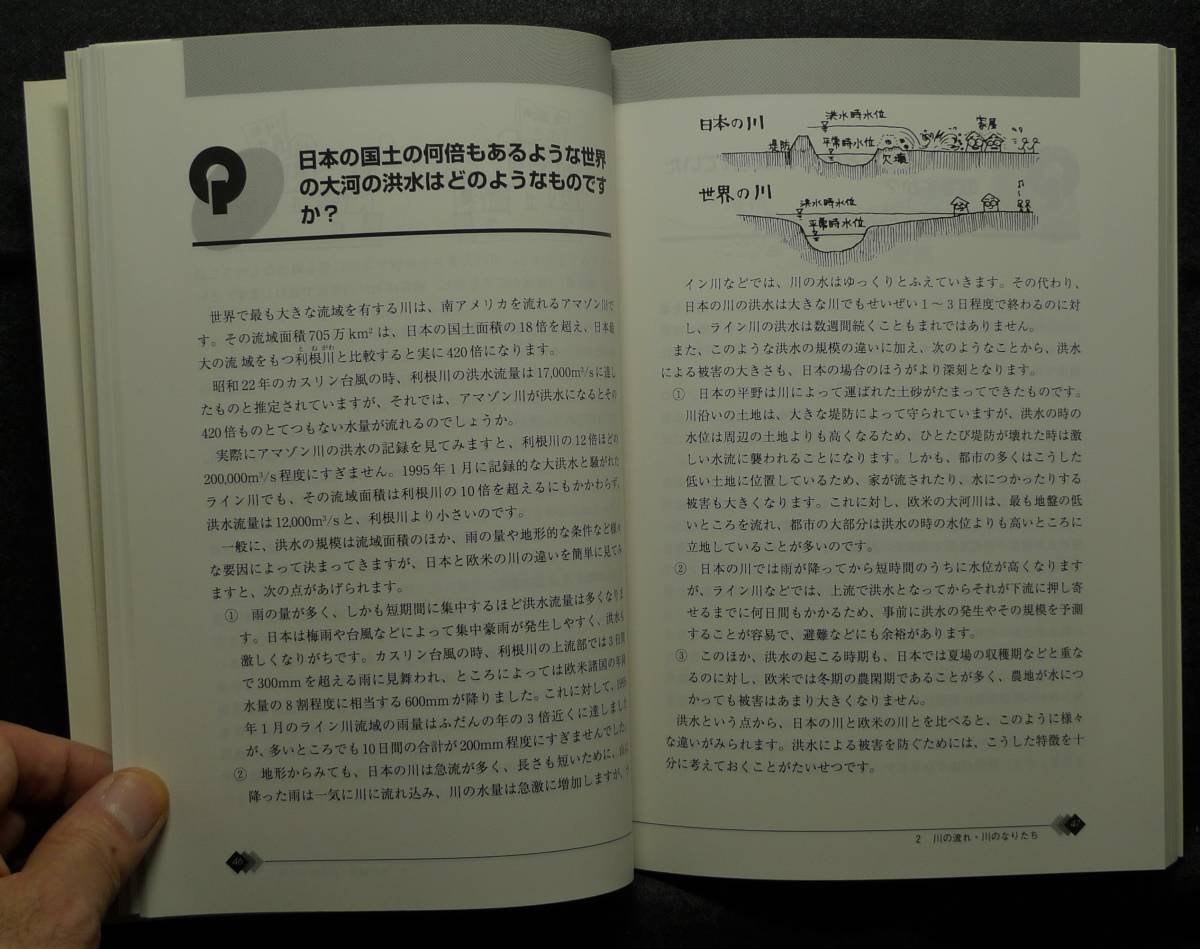 Q
日本の国土の何倍もあるような世界
の大河の洪水はどのようなものです
か？
世界で最も大きな流域を有する川は、南アメリカを流れるアマゾン川で
す。その流域面積705万km²は、日本の国土面積の18倍を超え、日本最
大の流域をもつ利根川と比較すると実に420倍になります。
とねがわ
昭和22年のカスリン台風の時、利根川の洪水流量は17,000m³/sに達し
たものと推定されていますが、それでは、アマゾン川が洪水になるとその
420倍ものとてつもない水量が流れるのでしょうか。
実際にアマゾン川の洪水の記録を見てみますと、利根川の12倍ほどの
200,000m³/s程度にすぎません。1995年1月に記録的な大洪水と騒がれた
ライン川でも、その流域面積は利根川の10倍を超えるにもかかわらず、
洪水流量は12,000m³/sと、利根川より小さいのです。
一般に、洪水の規模は流域面積のほか、雨の量や地形的な条件など様々
な要因によって決まってきますが、日本と欧米の川の違いを簡単に見てみ
ますと、次の点があげられます。
① 雨の量が多く、しかも短期間に集中するほど洪水流量は多くなりま
す。日本は梅雨や台風などによって集中豪雨が発生しやすく、洪水も
激しくなりがちです。カスリン台風の時、利根川の上流部では3日間
で300mmを超える雨に見舞われ、ところによっては欧米諸国の年間
水量の8割程度に相当する600mmが降りました。これに対して、1995
年1月のライン川流域の雨量はふだんの年の3倍近くに達しました
が、多いところでも10日間の合計が200mm程度にすぎませんでした。
② 地形からみても、日本の川は急流が多く、長さも短いために、山に
降った雨は一気に川に流れ込み、川の水量は急激に増加しますが、
46
日本の川
洪水時水位
家屋
堤防
平常時水位
欠壊
世界の川
洪水時水位
平常時水位
イン川などでは、川の水はゆっくりとふえていきます。その代わり、
日本の川の洪水は大きな川でもせいぜい1～3日程度で終わるのに対
し、ライン川の洪水は数週間続くこともまれではありません。
また、このような洪水の規模の違いに加え、次のようなことから、洪水
による被害の大きさも、日本の場合のほうがより深刻となります。
① 日本の平野は川によって運ばれた土砂がたまってできたものです。
川沿いの土地は、大きな堤防によって守られていますが、洪水の時の
水位は周辺の土地よりも高くなるため、ひとたび堤防が壊れた時は激
しい水流に襲われることになります。しかも、都市の多くはこうした
低い土地に位置しているため、家が流されたり、水につかったりする
被害も大きくなります。これに対し、欧米の大河川は、最も地盤の低
いところを流れ、都市の大部分は洪水の時の水位よりも高いところに
立地していることが多いのです。
② 日本の川では雨が降ってから短時間のうちに水位が高くなります
が、ライン川などでは、上流で洪水となってからそれが下流に押し寄
せるまでに何日間もかかるため、事前に洪水の発生やその規模を予測
することが容易で、避難などにも余裕があります。
③ このほか、洪水の起こる時期も、日本では夏場の収穫期などと重な
るのに対し、欧米では冬期の農閑期であることが多く、農地が水につ
かっても被害はあまり大きくなりません。
洪水という点から、日本の川と欧米の川とを比べると、このように様々
な違いがみられます。洪水による被害を防ぐためには、こうした特徴を十
分に考えておくことがたいせつです。
2 川の流れ・川のなりたち
47